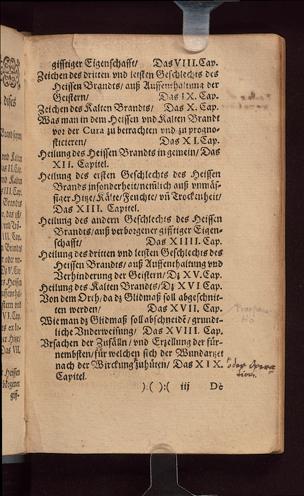 gifftiger Eigenschafft/ Das VIII. Cap.
Zeichen des dritten vnd letsten Geschlechts des
Heissen Brandts/ auß Auffenthaltung der
Geistern/ Das IX. Cap.
Zeichen des Kalten Brandts/ Das X. Cap.
Was man in dem Heissen vnd Kalten Brandt
vor der Cura zu betrachten vnd zu progno-
sticieren/ Das XI. Cap.
Heilung des Heissen Brandts in gemein/ Das
XII. Capitel.
Heilung des ersten Geschlechts des Heissen
Brands insonderheit/nemlich auß vnmäs-
siger Hitze/Kälte/ Feuchte/ vñ Trockenheit/
Das XIII. Capitel.
Heilung des andern Geschlechts des Heissen
Brandts/ auß verborgener gifftiger Eigen-
schafft/ Das XIIII. Cap.
Heilung des dritten vnd letsten Geschlechts des
Heissen Brandts/ auß Auffenthaltung vnd
Verhinderung der Geistern/ Dz XV. Cap.
Heilung des Kalten Brandts/ Dz XVI Cap.
Von dem Orth/ da dz Glidmaß soll abgeschnit-
ten werden/ Das XVII. Cap.
Wie man dz Glidmaß soll abschneidẽ/ gründt-
liche Vnderweisung/ Das XVIII. Cap.
Vrsachen der Zufälln/ vnd Erzellung der für-
nembsten/ für welchen sich der Wundartzet
nach der Wirckung zuhüten/ Das XIX.
Capitel.
oder Opera
tion.
):( ):( iij De